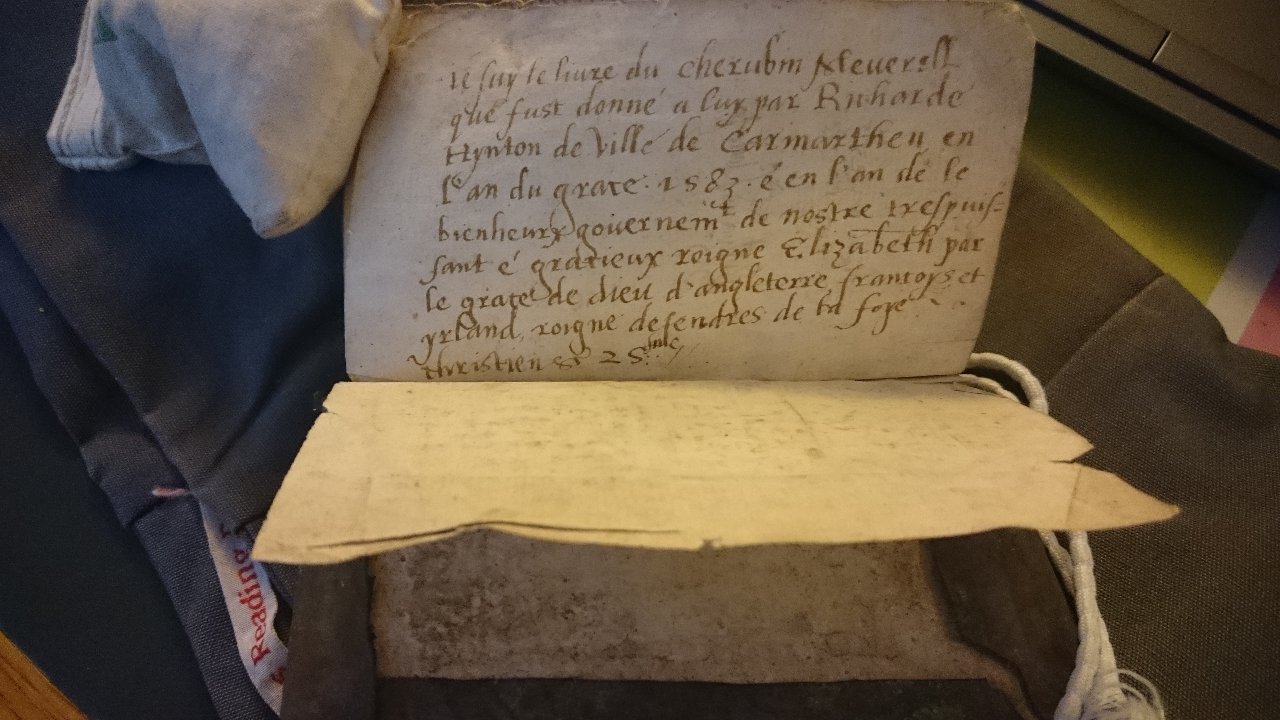 ie suy le livre du cherubin Neverell
que fust donné a luy par Richarde
Hynton de Ville de Carmarthen en
l'an du grace . 1583 . é en l'an de le
bienheurx governemt de nostre trespuis-
sant é gratieux roigne Elizabeth par
le grace de dieu d'angleterre francoys et
yrland, roigne defendres de la foye
christien &
Reading